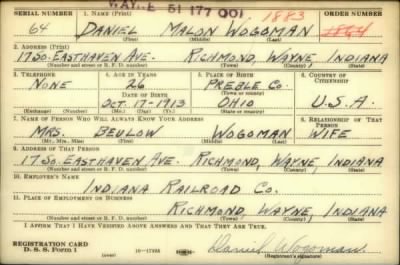 WAYNE 51 177 001
SERIAL NUMBER 1. NAME (Print) 1883 ORDER NUMBER
64 DANIEL MALON WOGOMAN
(First) (Middle) (Last)
2. ADDRESS (Print)
17 SO. EASTHAVEN AVE. RICHMOND, WAYNE, INDIANA
(Number and street or R. F. D. number) (Town) (County) (State)
3. TELEPHONE 4. AGE IN YEARS 5. PLACE OF BIRTH 6. COUNTRY OF CITIZENSHIP
NONE 26 PREBLE CO.
DATE OF BIRTH (Town or county)
OCT. 17-1913 OHIO U.S.A.
(Exchange) (Number) (Mo.) (Day) (Yr.) (State or country)
7. NAME OF PERSON WHO WILL ALWAYS KNOW YOUR ADDRESS 8. RELATIONSHIP OF THAT PERSON
MRS. BEULOW WOGOMAN WIFE
(Mr., Mrs., Miss) (First) (Middle) (Last)
9. ADDRESS OF THAT PERSON
17 SO. EASTHAVEN AVE. RICHMOND, WAYNE, INDIANA
(Number and street or R. F. D. number) (Town) (County) (State)
10. EMPLOYER'S NAME
INDIANA RAILROAD CO.
11. PLACE OF EMPLOYMENT OR BUSINESS
RICHMOND, WAYNE, INDIANA
(Number and street or R. F. D. number) (Town) (County) (State)
I AFFIRM THAT I HAVE VERIFIED ABOVE ANSWERS AND THAT THEY ARE TRUE.
REGISTRATION CARD
D. S. S. Form 1 (over) 16-17105 Daniel Wogoman
(Registrant's signature)